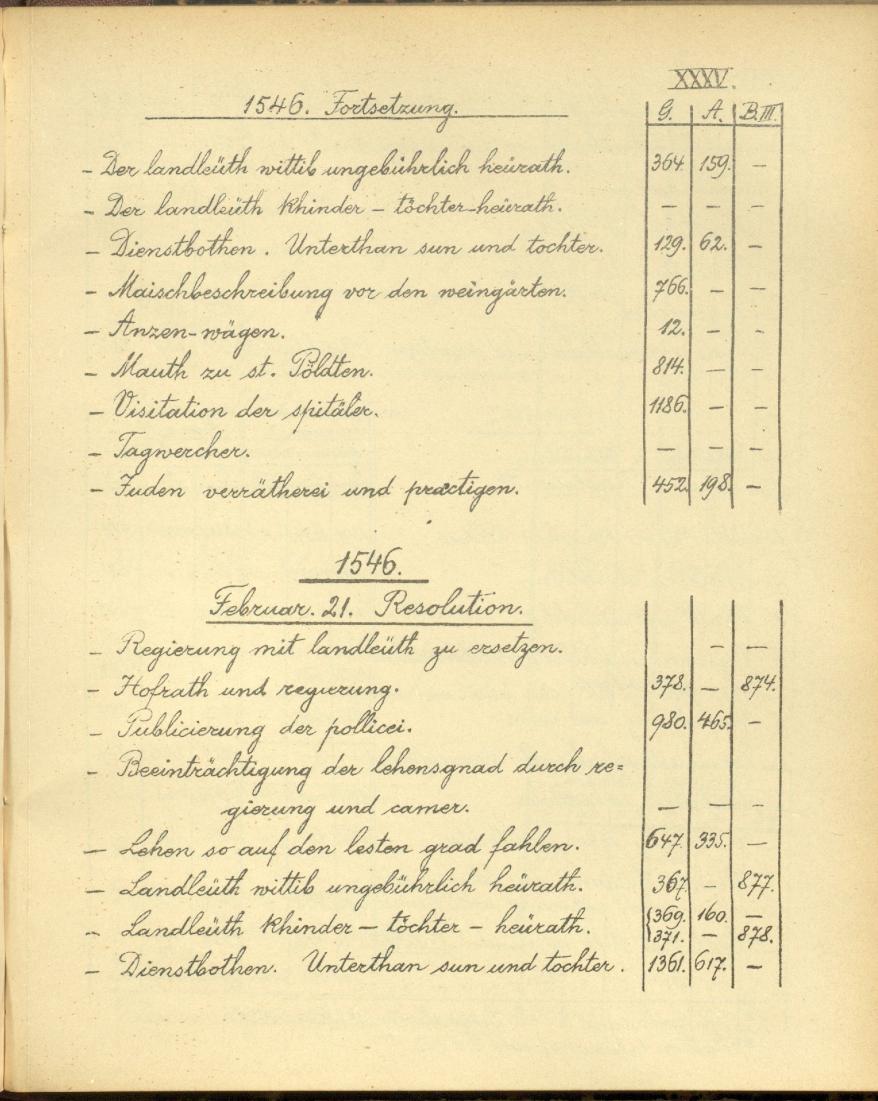 XXXV.
1546. Fortsetzung. G. A. B.III.
- Der landleüth wittib ungebührlich heürath. 364. 159. -
- Der landleüth khinder - töchter-heürath. - - -
- Dienstbothen. Unterthan sun und tochter. 129. 62. -
- Maischbeschreibung vor den weingärten. 766. - -
- Anzen-wägen. 12. - -
- Mauth zu st. Pöldten. 814. - -
- Visitation der spitäler. 1186. - -
- Tagwercher. - - -
- Juden verrätherei und practigen. 452. 198. -
1546.
Februar. 21. Resolution.
- Regierung mit landleüth zu ersetzen. - -
- Hofrath und regierung. 378. - 874.
- Publicierung der pollicei. 980. 465. -
- Beeinträchtigung der lehensgnad durch re=
gierung und camer. - - -
- Lehen so auf den lesten grad fahlen. 647. 335. -
- Landleüth wittib ungebührlich heürath. 367. - 877.
- Landleüth khinder - töchter - heürath. {369. 160. -
{371. - 878.
- Dienstbothen. Unterthan sun und tochter. 1361. 617. -